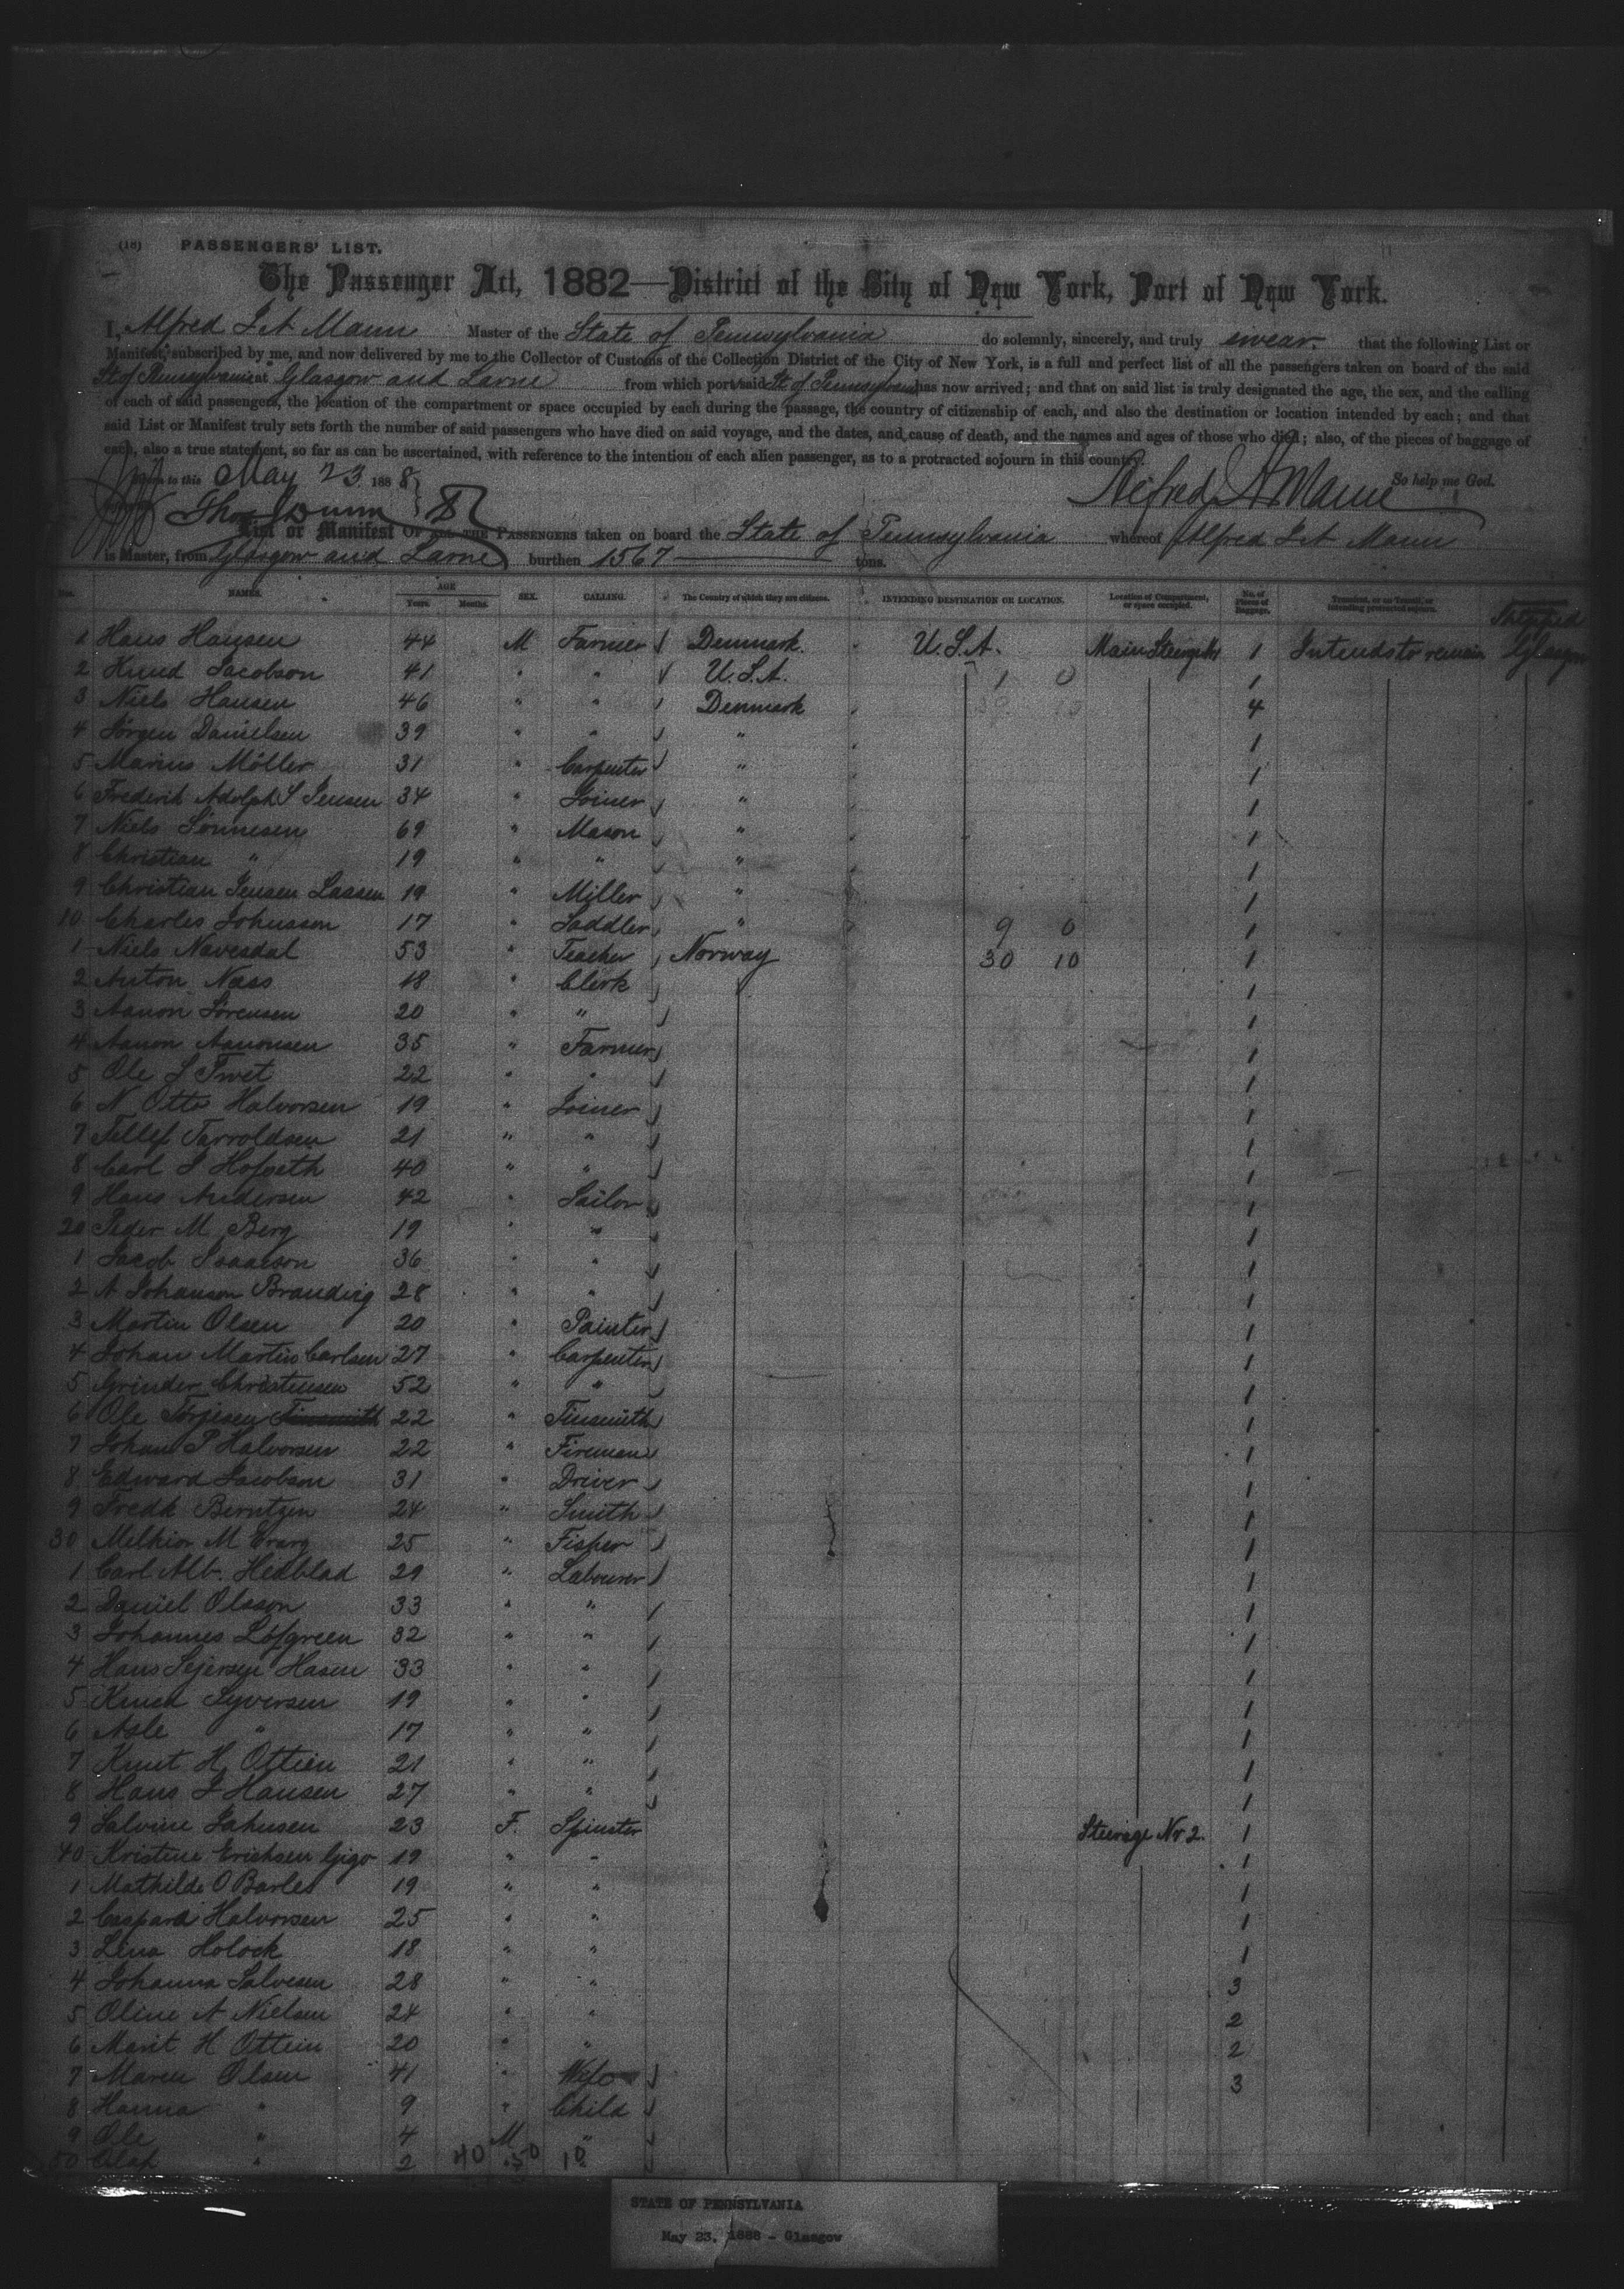 (18) PASSENGERS' LIST.
The Passenger Act, 1882—District of the City of New York, Port of New York.
I, Alfred Mann Master of the State of Pennsylvania do solemnly, sincerely, and truly swear that the following List or
Manifest, subscribed by me, and now delivered by me to the Collector of Customs of the Collection District of the City of New York, is a full and perfect list of all the passengers taken on board of the said
St of Pennsylvania at Glasgow and Larne from which port said St of Pennsylvania has now arrived; and that on said list is truly designated the age, the sex, and the calling
of each of said passengers, the location of the compartment or space occupied by each during the passage, the country of citizenship of each, and also the destination or location intended by each; and that
said List or Manifest truly sets forth the number of said passengers who have died on said voyage, and the dates, and cause of death, and the names and ages of those who died; also, of the pieces of baggage of
each, also a true statement, so far as can be ascertained, with reference to the intention of each alien passenger, as to a protracted sojourn in this country.
to this May 23 1888 So help me God.
Alfred Mann
Thos Dunn
List or Manifest OF ALL THE PASSENGERS taken on board the State of Pennsylvania whereof Alfred Mann
is Master, from Glasgow and Larne burthen 1567 tons.
Nos. NAMES. AGE Years. Months. SEX. CALLING. The Country of which they are citizens. INTENDING DESTINATION OR LOCATION. Location of Compartment, or space occupied. No. of Pieces of Baggage. Transient, or in Transit, or intending protracted sojourn. Shipped
1 Hans Hansen 44 M Farmer Denmark. U.S.A. Main Steerage 1 Intends to remain Glasgow
2 Knud Jacobson 41 " " U.S.A. 1 0 1
3 Niels Hansen 46 " " Denmark 4
4 Jörgen Danielsen 39 " " " 1
5 Marius Möller 31 " Carpenter " 1
6 Frederik Adolph S Jensen 34 " Joiner " 1
7 Niels Sonnesen 69 " Mason " 1
8 Christian " 19 " " " 1
9 Christian Jensen Lassen 19 " Miller " 1
10 Charles Johnsson 17 " Saddler " 9 0 1
1 Niels Navesdal 53 " Teacher Norway 30 10 1
2 Anton Næss 18 " Clerk 1
3 Aanon Sörensen 20 " " 1
4 Aanon Aanonsen 35 " Farmer 1
5 Ole S Tvet 22 " " 1
6 N Otto Halvorsen 19 " Joiner 1
7 Tellef Tarroldsen 21 " " 1
8 Carl J Hofseth 40 " " 1
9 Hans Andersen 42 " Sailor 1
20 Peder M Berg 19 " " 1
1 Jacob Isaacson 36 " " 1
2 A Johanson Brandvig 28 " " 1
3 Martin Olsen 20 " Painter 1
4 Johan Martin Carlsen 27 " Carpenter 1
5 Grinder Christensen 52 " " 1
6 Ole Törjesen Tinsmith 22 " Tinsmith 1
7 Johan P Halvorsen 22 " Fireman 1
8 Edward Jacobsen 31 " Driver 1
9 Fredk Berntzen 24 " Smith 1
30 Melkior M 25 " Fisher 1
1 Carl Alb. Hedblad 29 " Labourer 1
2 Daniel Olsson 33 " " 1
3 Johannes Löfgreen 32 " " 1
4 Hans Sejersen Hasen 33 " " 1
5 Knud Syversen 19 " " 1
6 Asle " 17 " " 1
7 Knut H Ottein 21 " " 1
8 Hans J Hansen 27 " " 1
9 Salvine Jahnsen 23 F. Spinster Steerage No 2. 1
40 Kristine Erichsen 19 " " 1
1 Mathilde O Barles 19 " " 1
2 Caspara Halvorsen 25 " " 1
3 Lina Holock 18 " " 1
4 Johanna Salvesen 28 " " 3
5 Oline A Nielsen 24 " " 2
6 Marit H Ottein 20 " " 2
7 Maren Olsen 41 " Wife 3
8 Hanna " 9 " Child
9 Ole " 4 M "
50 Olaf " 2 40 50 10
STATE OF PENNSYLVANIA
May 23, 1888 - Glasgow